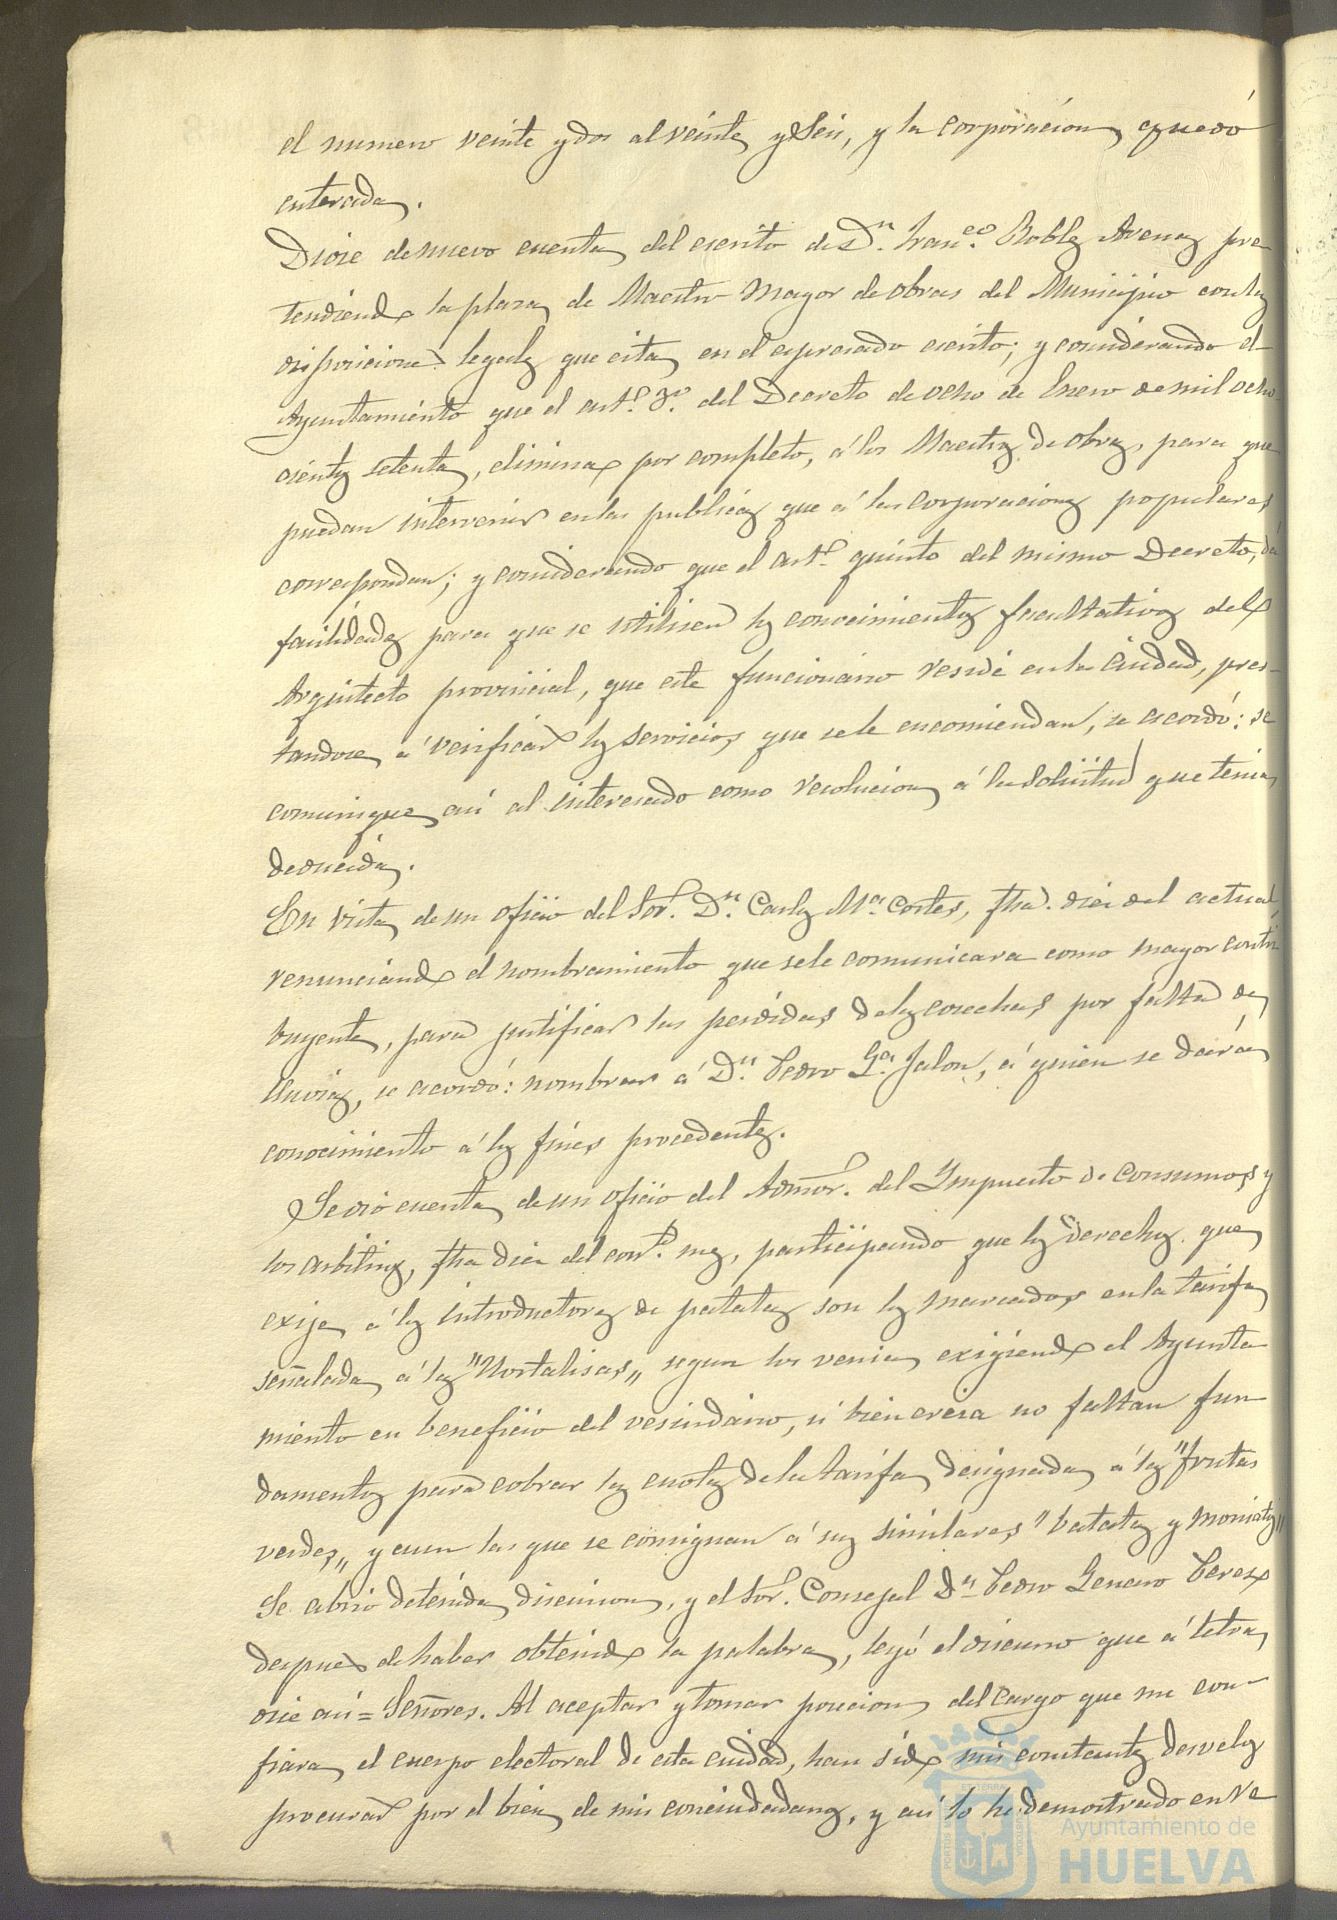 el numero veinte y dos al veinte y seis, y la corporacion quedó
enterada.
Diose de nuevo cuenta del escrito de Dn. Franco. Robles Arenas pre
tendiendo la plaza de Maestro Mayor de obras del Municipio con las
disposiciones legales que cita en el espresado escrito; y considerando el
Ayuntamiento que el artº. 3º. del Decreto de ocho de Enero de mil ocho-
cientos setenta, elimina por completo, á los Maestros de obras, para que
puedan intervenir en las publicas que á las corporaciones populares
correspondan; y considerando que el artº. quinto del mismo Decreto, dá
facilidades para que se utilisen los conocimientos facultativos del
Arquitecto provincial, que este funcionario reside en la Ciudad, pres-
tandose á verificar los servicios que se le encomiendan, se acordó: se
comunique asi al interesado como resolucion á la solicitud que tenia
deducida.
En vista de un oficio del Sor. Dn. Carlos Ma. Cortes, fha. diez del actual
renunciando el nombramiento que se le comunicara como mayor contri
buyente, para justificar las perdidas de las cosechas por falta de
lluvias, se acordó: nombrar á Dn. Pedro Ga. Jalon, á quien se dará
conocimiento á los fines procedentes.
Se dió cuenta de un oficio del Admor. del Impuesto de consumos y
los arbitrios, fha diez del corte. mes, participando que los derechos que
exije á los introductores de patatas son los marcados en la tarifa
señalada á las "Hortalisas" segun los venia exigiendo el Ayunta
miento en beneficio del vesindario, si bien creia no faltan fun
damentos para cobrar las cuotas de la tarifa designada á las "frutas
verdes" y aun las que se consignan á sus similares "batatas y moniatos"
Se abrio detenida discusion, y el Sor. Consejal Dn. Pedro Genaro Perez
despues de haber obtenido la palabra, leyó el discurso que á letra
dice asi = Señores. Al aceptar y tomar posecion del cargo que me con-
fiara el cuerpo electoral de esta ciudad, han sido mis constantes desvelos
procurar por el bien de mis conciudadanos, y asi lo he demostrado en re
Ayuntamiento de
HUELVA